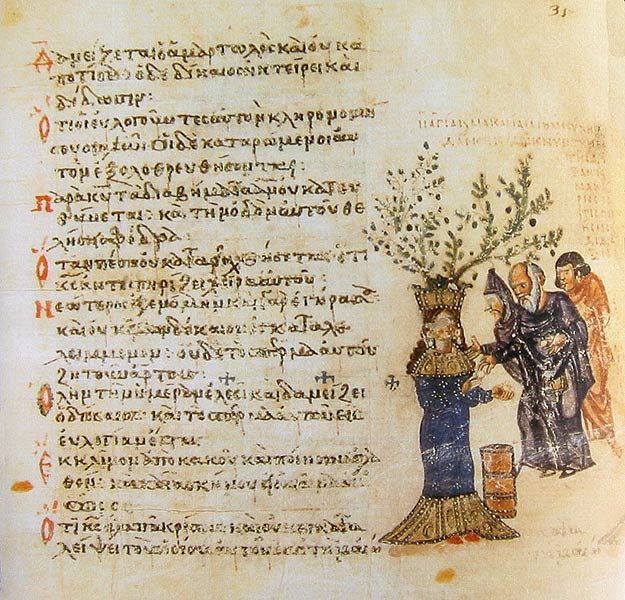 31
Δανείζεται ὁ ἁμαρτωλὸς καὶ οὐκ ἀ
ποτίσει· ὁ δὲ δίκαιος οἰκτείρει καὶ
δίδωσιν:
Ὅτι οἱ εὐλογοῦντες αὐτὸν κληρονομήσ
ουσι γῆν· οἱ δὲ καταρώμενοι αὐ
τὸν ἐξολοθρευθήσονται:
Παρὰ κυ τὰ διαβήματα ἀνου κατευ
θύνεται: καὶ τὴν ὁδὸν αὐτοῦ θε
λήσει σφόδρα:
Ὅταν πέσῃ οὐ καταραχθήσεται· ὅτι
κς ἀντιστηρίζει χεῖρα αὐτοῦ:
Νεώτερος ἐγενόμην καὶ γὰρ ἐγήρασα·
καὶ οὐκ εἶδον δίκαιον ἐγκαταλε
λειμμένον: οὐδὲ τὸ σπέρμα αὐτοῦ
ζητοῦν ἄρτους:
Ὅλην τὴν ἡμέραν ἐλεεῖ καὶ δανείζει
ὁ δίκαιος· καὶ τὸ σπέρμα αὐτοῦ εἰς
εὐλογίαν ἔσται
Ἔκκλινον ἀπὸ κακοῦ καὶ ποίησον ἀγα
θόν· καὶ κατασκήνου εἰς αἰῶνα αἰ
ῶνος
Ὅτι κς ἀγαπᾷ κρίσιν καὶ οὐκ ἐγκατα
λείψει τοὺς ὁσίους αὐτοῦ εἰς τὸν αἰῶνα